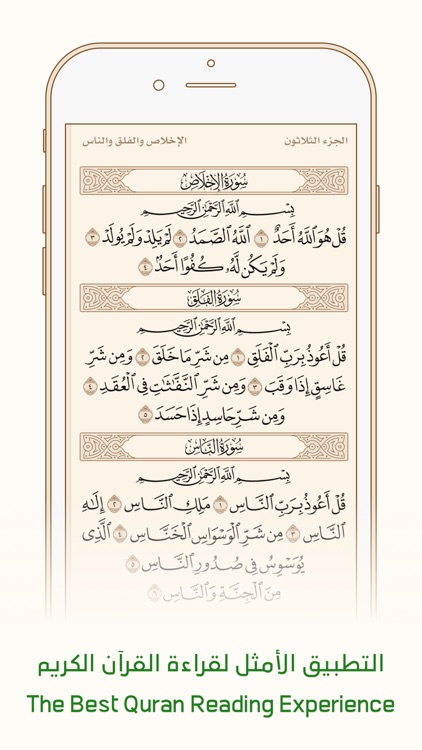 الجزء الثلاثون
الإخلاص والفلق والناس
سُورَةُ الإِخْلَاصِ
بِسْمِ اللَّهِ الرَّحْمَٰنِ الرَّحِيمِ
قُلْ هُوَ اللَّهُ أَحَدٌ ١ اللَّهُ الصَّمَدُ ٢ لَمْ يَلِدْ وَلَمْ يُولَدْ ٣
وَلَمْ يَكُن لَّهُۥ كُفُوًا أَحَدٌۢ ٤
سُورَةُ الفَلَقِ
بِسْمِ اللَّهِ الرَّحْمَٰنِ الرَّحِيمِ
قُلْ أَعُوذُ بِرَبِّ الْفَلَقِ ١ مِن شَرِّ مَا خَلَقَ ٢ وَمِن شَرِّ
غَاسِقٍ إِذَا وَقَبَ ٣ وَمِن شَرِّ النَّفَّٰثَٰتِ فِي الْعُقَدِ ٤
وَمِن شَرِّ حَاسِدٍ إِذَا حَسَدَ ٥
سُورَةُ النَّاسِ
بِسْمِ اللَّهِ الرَّحْمَٰنِ الرَّحِيمِ
قُلْ أَعُوذُ بِرَبِّ النَّاسِ ١ مَلِكِ النَّاسِ ٢ إِلَٰهِ
النَّاسِ ٣ مِن شَرِّ الْوَسْوَاسِ الْخَنَّاسِ ٤ الَّذِي
يُوَسْوِسُ فِي صُدُورِ النَّاسِ ٥
مِنَ الْجِنَّةِ وَالنَّاسِ ٦
التطبيق الأمثل لقراءة القرآن الكريم
The Best Quran Reading Experience